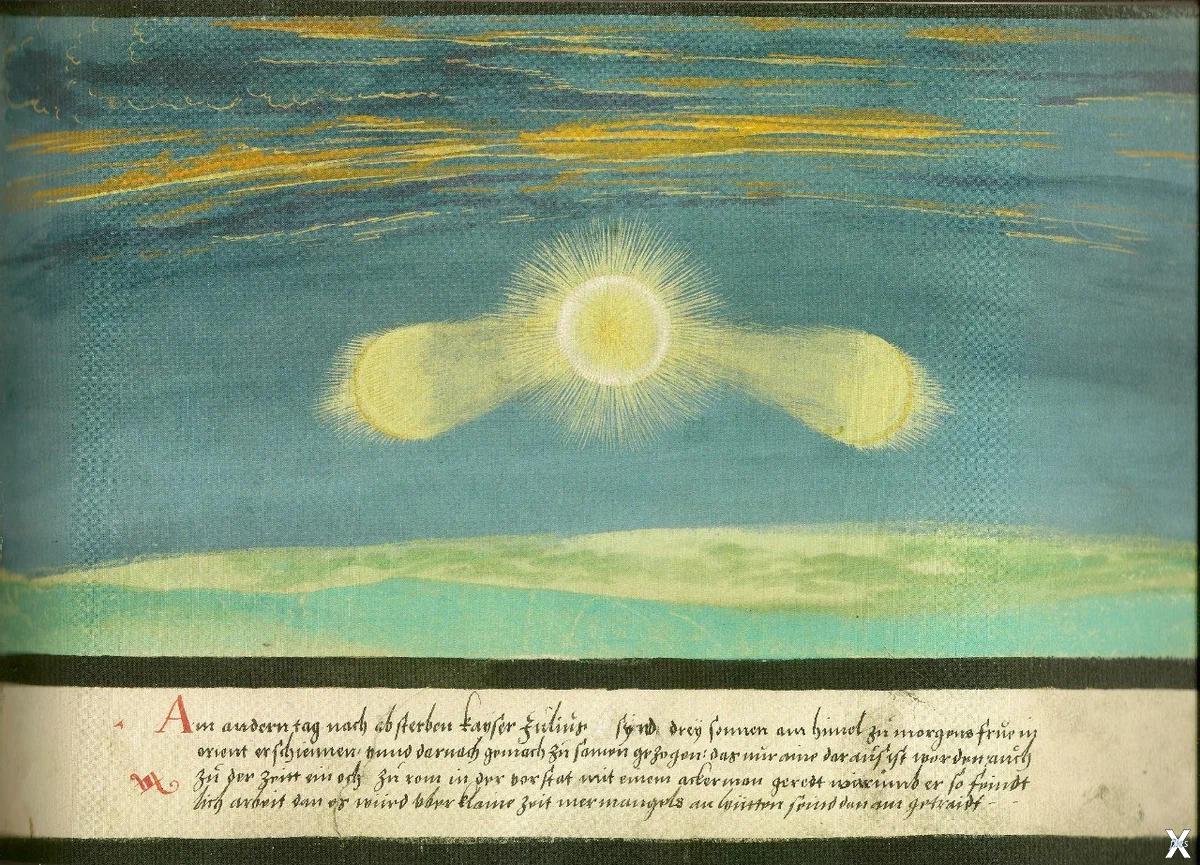 Am andern tag nach absterben kayser Julius synd drey sonnen am himel zu morgens frue in
orient erschiennen vnnd darnach gemach zu samen gezogen das nur aine dar auss ist worden auch
zu der zeytt ein ochs zu rom in der vorstat mit einem ackerman geredt warumb er so feindt
lich arbeit dan es wurd vber klaine zeit mer mangels an leutten seind dan am getraidt
X